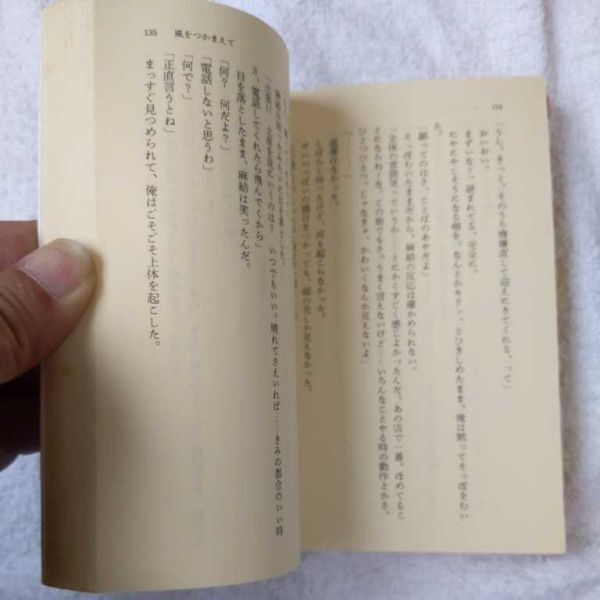 134
「うん。きっと、そのうち機嫌直して迎えにきてくれる、って」
おいおい。
まずいなー。読まれてる、完全に。
にやにやしそうになる頬を、なんとかキリッ、とひきしめたまま、俺は黙ってそっぽをむい
「願ってのはさ、ことばのあやだよ」
そっぽむいたままだから、麻結の反応は確かめられない。
「全体の雰囲気っていうか……とにかくすごく感じよかったんだ、あの店で一番。ほめてるこ
とにならねーな、この街でもさ。うまく言えないけど……いろんなことやる時の動作とかさ、
ひとつひとつ。じゃなきゃ、かわいくなんか見えないよ」
「…………」
返事はなかった。
しばらく待ったけど、何も起こらなかった。
135　風をつかまえて
さ、電話してくれたら飛んでくから」
目を落としたまま、麻結は笑ったんだ。
「電話しないと思うわ」
「何？　何だよ？」
「何で？」
「正直言うとね」
まっすぐ見つめられて、俺はごそごそ上体を起こした。